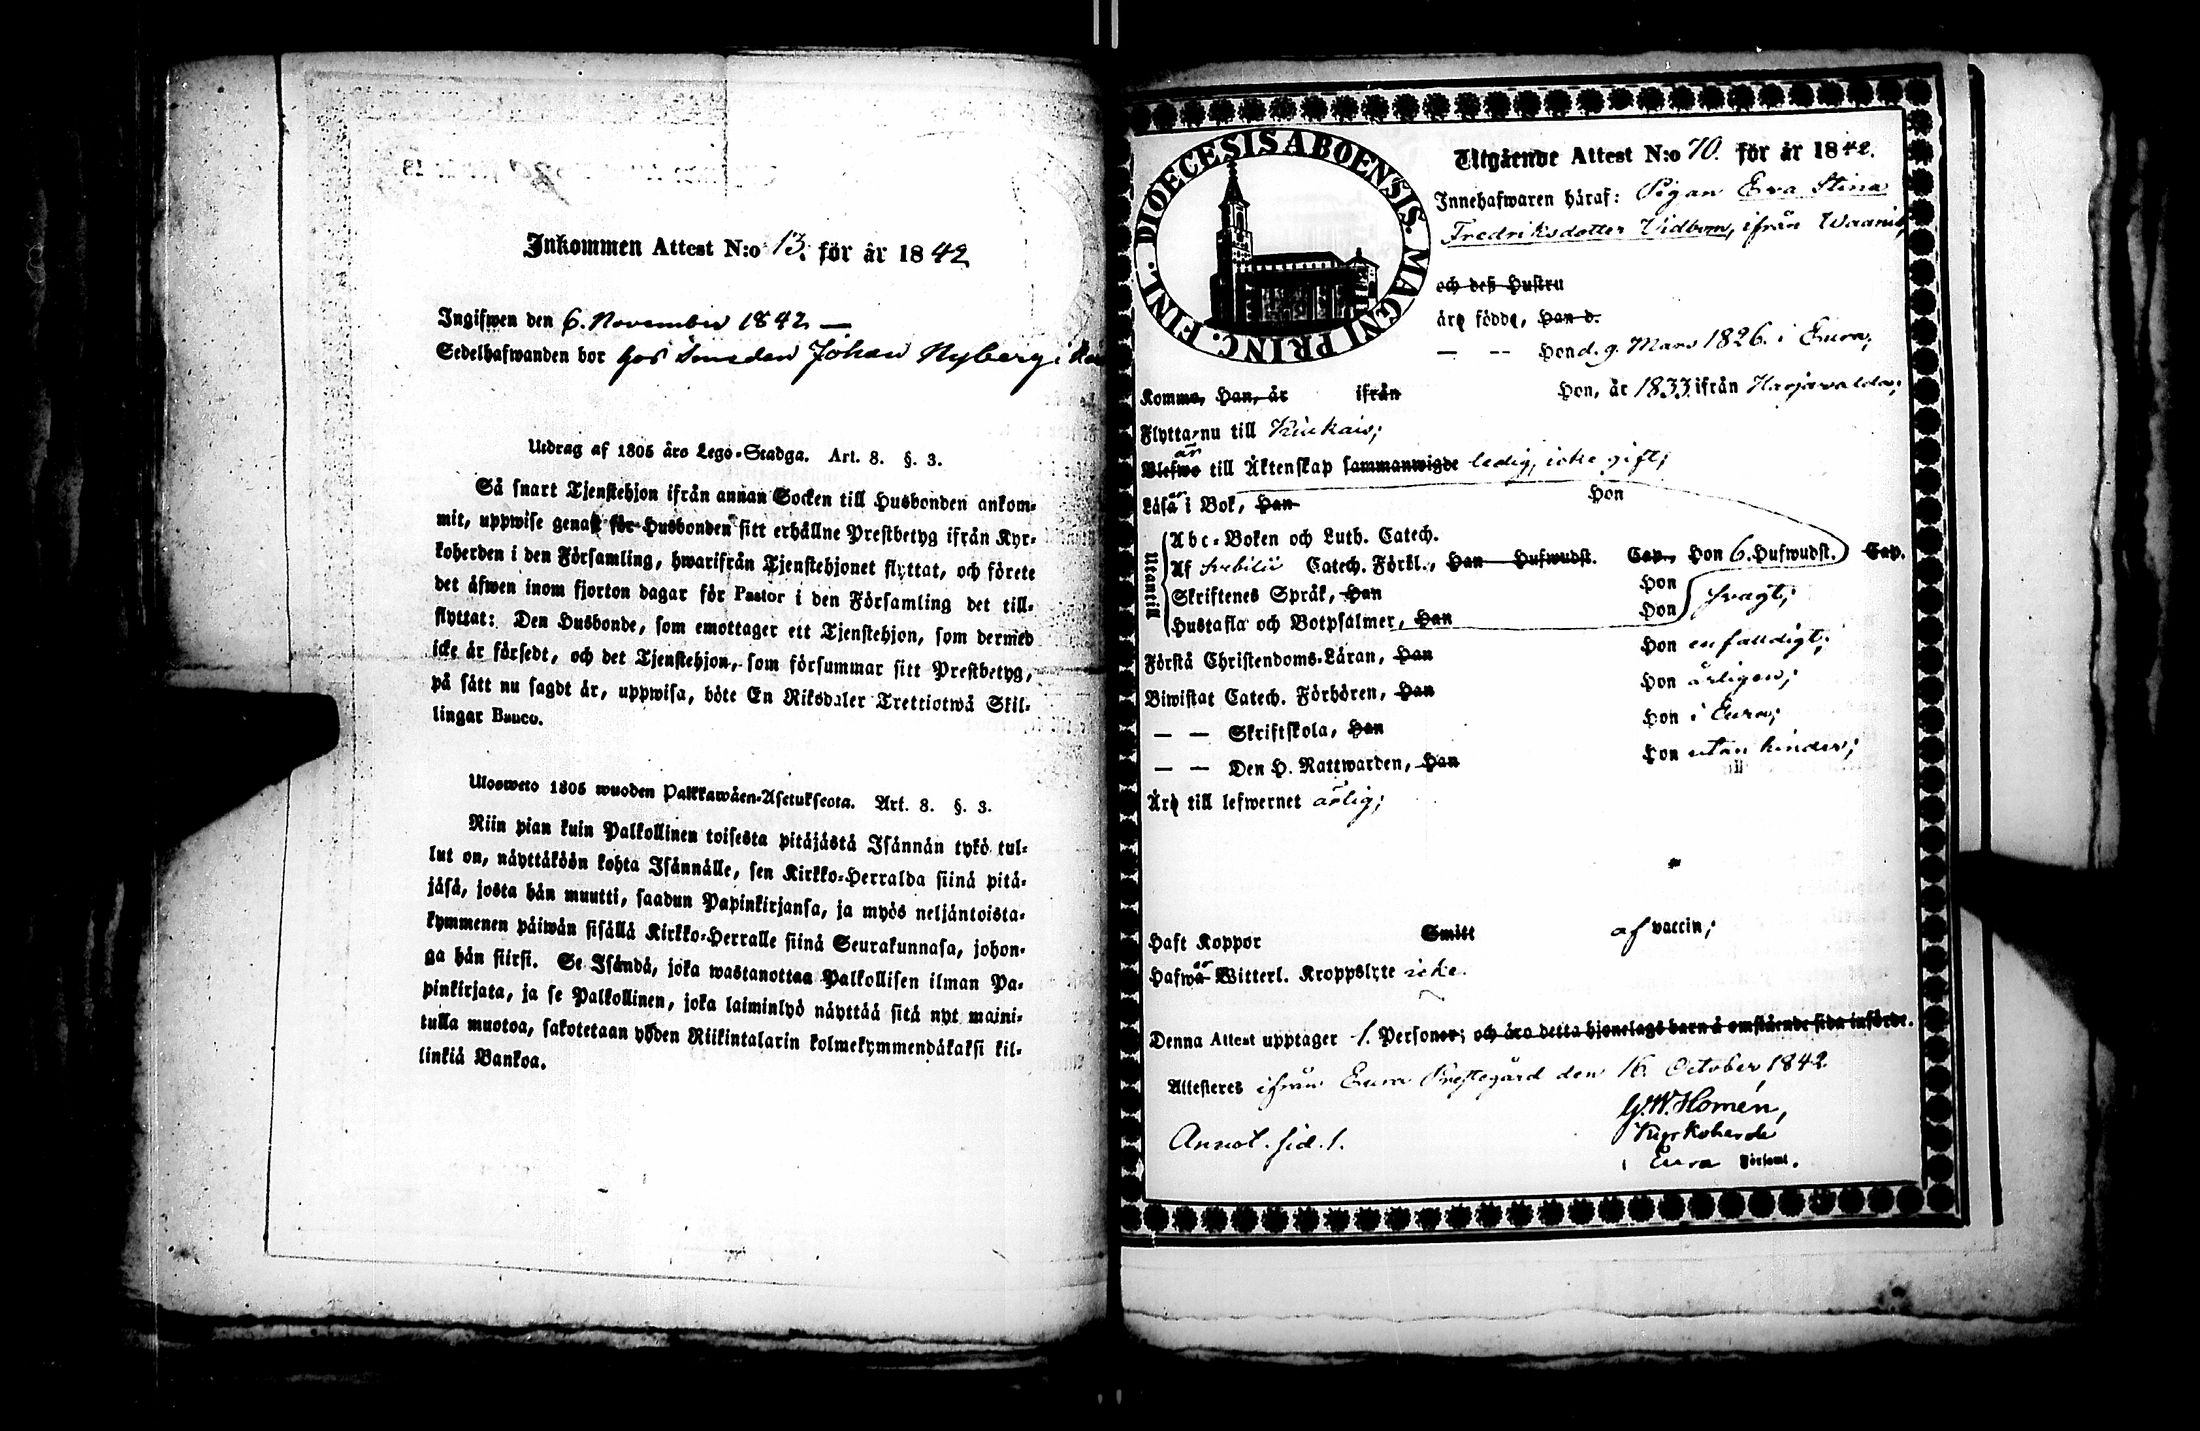 Inkommen Attest N:o 13. för år 1842
Ingifwen den 6. November 1842 —
Sedelhafwanden bor hos Smeden Johan Nyberg i
Utdrag af 1805 års Lego-Stadga. Art. 8. §. 3.
Så snart Tjenstehjon ifrån annan Socken till Husbonden ankom-
mit, uppwise genast för Husbonden sitt erhållne Prestbetyg ifrån Kyr-
koherden i den Församling, hwarifrån Tjenstehjonet flyttat, och förete
det äfwen inom fjorton dagar för Pastor i den Församling det till-
flyttat: Den Husbonde, som emottager ett Tjenstehjon, som dermed
icke är försedt, och det Tjenstehjon, som försummar sitt Prestbetyg,
på sätt nu sagdt är, uppwisa, böte En Riksdaler Trettiotwå Skil-
lingar Banco.
Ulosweto 1805 wuoden Palkkawäen-Asetuksesta. Art. 8. §. 3.
Niin pian kuin Palkollinen toisesta pitäjästä Isännän tykö tul-
lut on, näyttäköön kohta Isännälle, sen Kirkko-Herralda siinä pitä-
jäsä, josta hän muutti, saadun Papinkirjansa, ja myös neljäntoista-
kymmenen päiwän sisällä Kirkko-Herralle siinä Seurakunnasa, johon-
ga hän siirsi. Se Isändä, joka wastanottaa Palkollisen ilman Pa-
pinkirjata, ja se Palkollinen, joka laiminlyö näyttää sitä nyt maini-
tulla muotoa, sakotetaan yhden Riikintalarin kolmekymmendäkaksi kil-
linkiä Bankoa.
DIOECESIS ABOENSIS. MAGNI PRINC. FINL.
Utgående Attest N:o 70. för år 1842.
Innehafwaren häraf: Pigan Eva Stina
Fredriksdotter Vidbom, ifrån Waanii,
och deß Hustru
äro födde, Han d.
— -- Hon d. 9. Mars 1826. i Eura;
Komme, Han, år ifrån Hon, år 1833. ifrån Harjavalda;
Flytta nu till Kiukais;
är
Blefwe till Äktenskap sammanwigde ledig, icke gift;
Läsa i Bok, Han Hon
Utantill
Abc-Boken och Luth. Catech.
Af Svebilii Catech. Förkl., Han Hufwudst. Cap., Hon 6. Hufwudst. Cap.
Skriftenes Språk, Han Hon
Hustafla och Botpsalmer, Han Hon svagt;
Förstå Christendoms-Läran, Han Hon enfaldigt;
Biwistat Catech. Förhören, Han Hon årligen;
— — Skriftskola, Han Hon i Eura;
— — Den H. Nattwarden, Han Hon utan hinder;
Äro till lefwernet ärlig;
Haft Koppor Smitt af vaccin;
er
Hafwa Witterl. Kroppslyte icke.
Denna Attest upptager 1. Personer; och äro detta hjonelags barn å omstående sida införde.
Attesteres ifrån Eura Prestegård den 16. October 1842
G.W. Homén,
Kyrkoherde
i Eura Församl.
Annot. sid. 1.